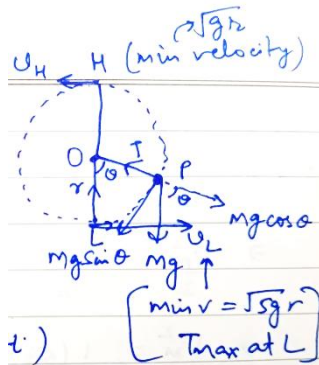 √gr
υH H (min velocity)
O θ T P
r θ
Mg cosθ
L υL
Mg sinθ Mg
[min v = √5gr
Tmax at L]